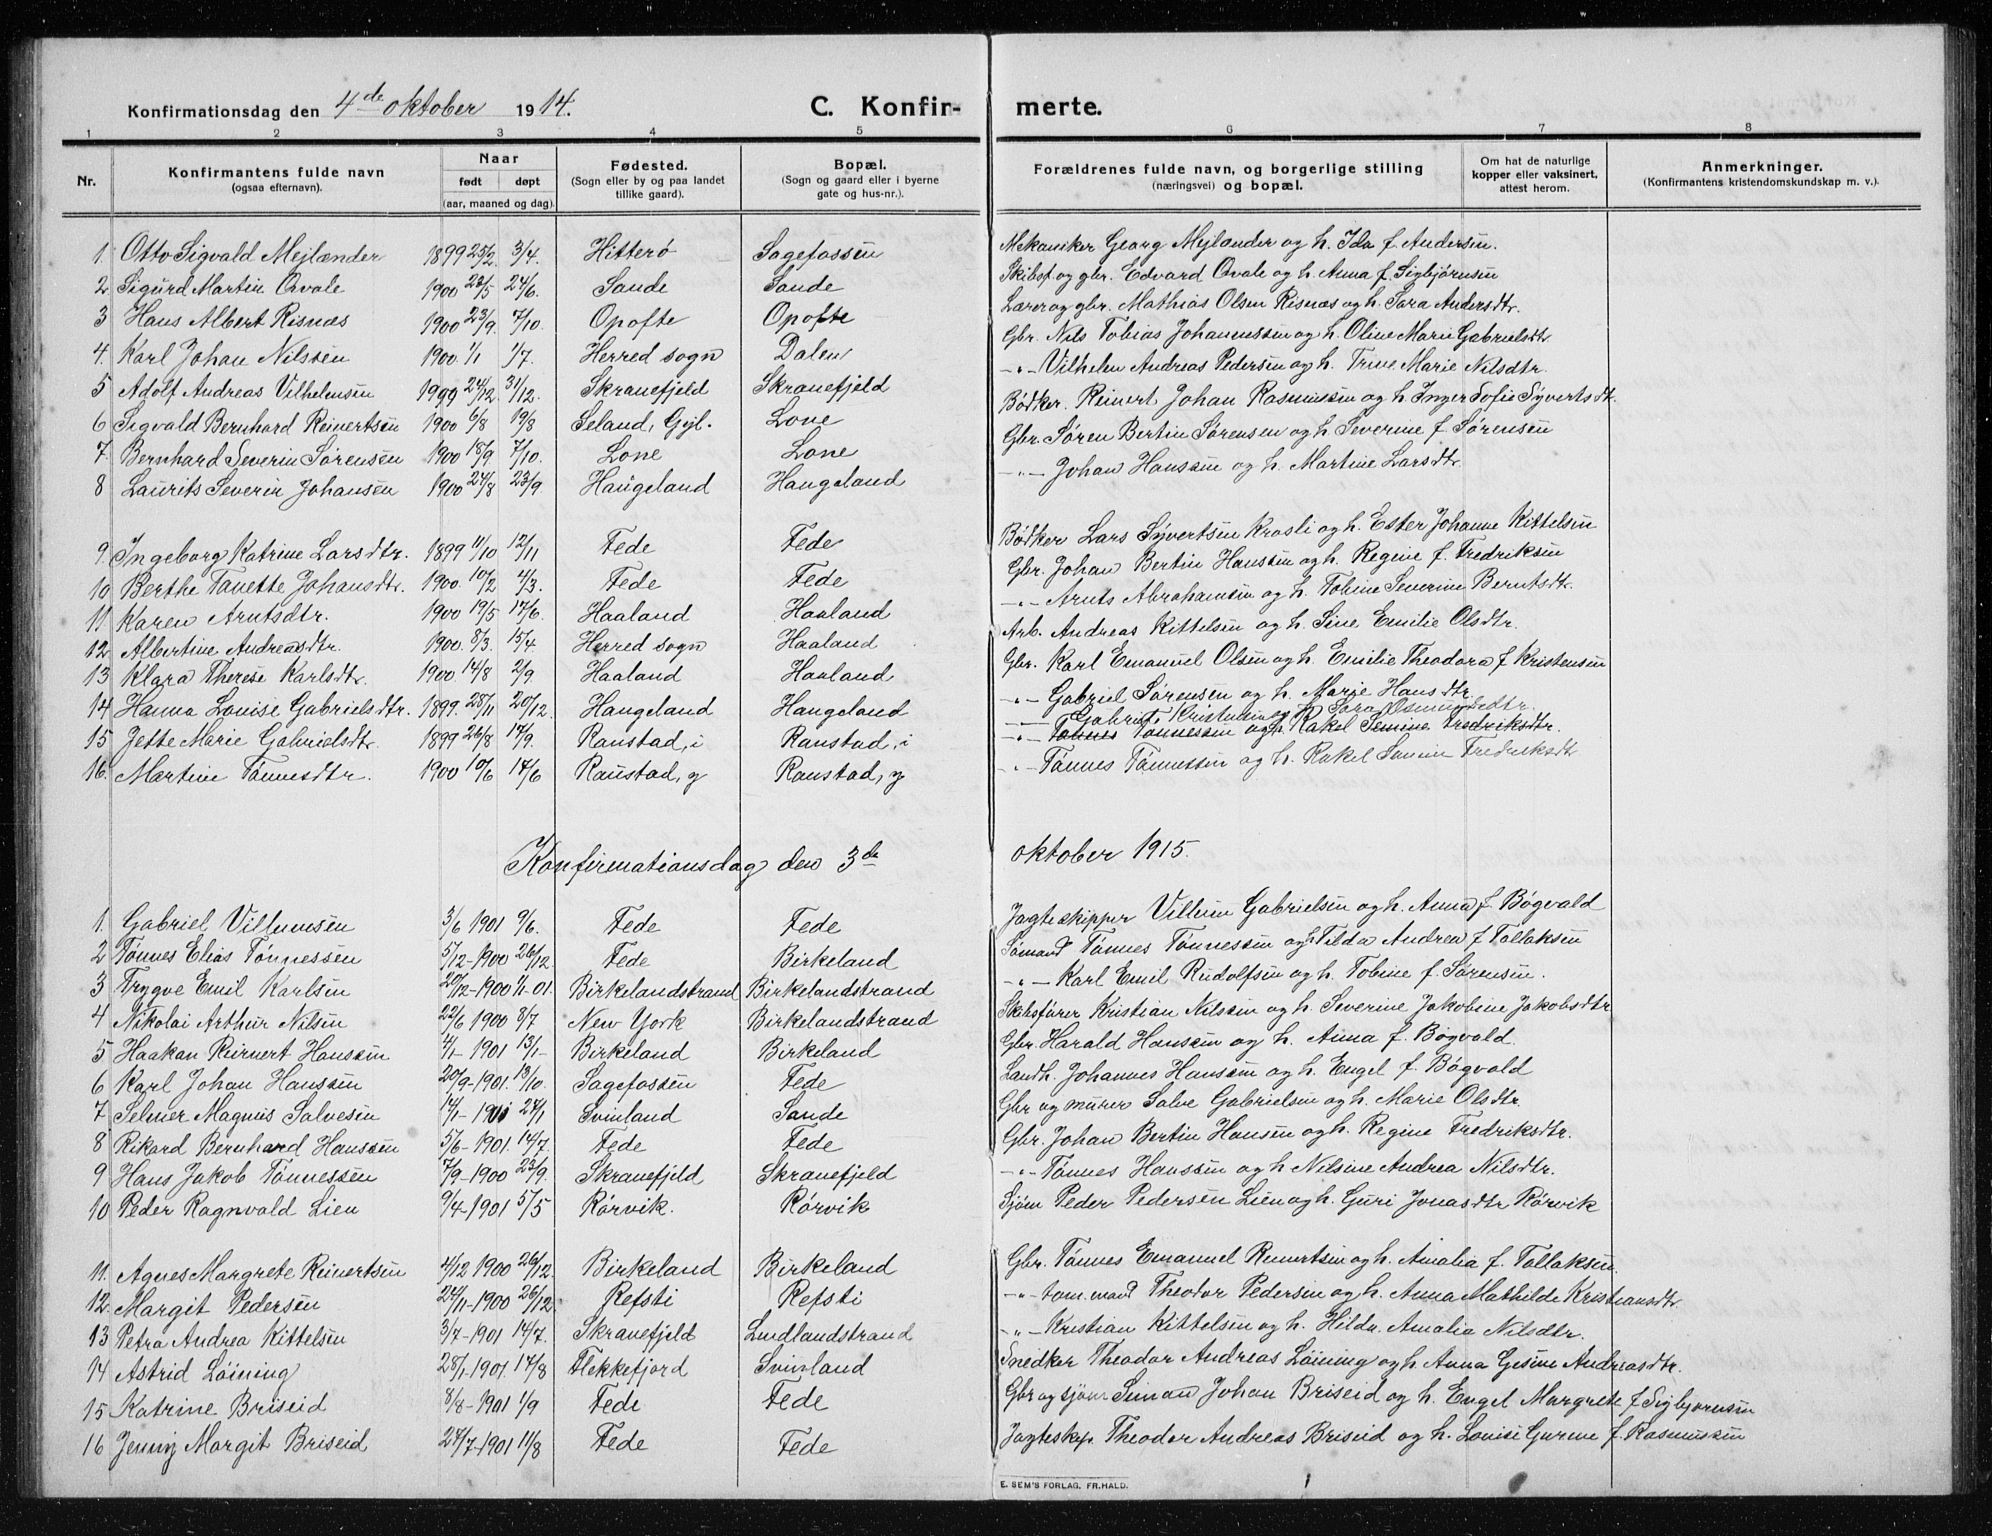 Konfirmationsdag den 4de oktober 1914. C. Konfir- merte.
1 2 3 4 5 6 7 8
Nr. Konfirmantens fulde navn (ogsaa efternavn). Naar født døpt (aar, maaned og dag). Fødested. (Sogn eller by og paa landet tillike gaard). Bopæl. (Sogn og gaard eller i byerne gate og hus-nr.). Forældrenes fulde navn, og borgerlige stilling (næringsvei) og bopæl. Om hat de naturlige kopper eller vaksinert, attest herom. Anmerkninger. (Konfirmantens kristendomskundskap m. v.).
1. Otto Sigvald Mejlænder 1899 25/2. 3/4. Hitterø Sagefossen Mekaniker Georg Mejlænder og h. Ida f. Andersen.
2 Sigurd Martin Qvale 1900 23/5 24/6. Sande Sande Skibsf. og gbr. Edvard Qvale og h. Anna f. Sigbjørnsen
3 Hans Albert Risnæs 1900 23/9. 7/10. Opofte Opofte Lærer og gbr. Mathias Olsen Risnæs og h. Sara Andersdtr.
4. Karl Johan Nilssen 1900. 1/1 1/7. Herred sogn Dalen Gbr. Nils Tobias Johannessen og h. Oline Marie Gabrielsdtr
5 Adolf Andreas Vilhelmsen 1999 24/12. 31/12. Skranefjeld Skranefjeld -"- Vilhelm Andreas Pedersen og h. Trine Marie Nilsdtr.
6 Sigvald Bernhard Reinertsen 1900 6/8 19/8 Seland, Gyl. Lone Bødker. Reinert Johan Rasmussen og h Inger Sofie Syvertsdt.
7 Bernhard Severin Sørensen 1900 18/9 7/10. Lone Lone Gbr. Søren Bertin Sørensen og h Severine f. Sørensen
8 Laurits Severin Johansen 1900 24/8 23/9 Haugeland Haugeland -"- Johan Hanssen og h. Martine Larsdtr
9. Ingeborg Katrine Larsdtr. 1899 11/10 12/11 Fede Fede Bødker Lars Syvertsen Krosli og h. Ester Johanne Kittelsen
10 Berthe Tanette Johansdtr. 1900. 10/2 4/3. Fede Fede Gbr. Johan Bertin Hanssen og h. Regine f. Fredriksen
11. Karen Arntsdtr. 1900 19/5 17/6 Haaland Haaland -"- Arnts Abrahamsen og h. Tobine Severine Berntsdtr.
12 Albertine Andreasdtr. 1900. 8/3. 15/4 Herred sogn Haaland Arb. Andreas Kittelsen og h. Sine Emilie Olsdtr.
13 Klara Therese Karlsdtr. 1900 14/8 2/9 Haaland Haaland Gbr. Karl Emanuel Olsen og h. Emilie Theodora f Kristensen
14 Hanna Louise Gabrielsdtr. 1899. 28/11 20/12. Haugeland Haugeland -"- Gabriel Sørensen og h. Marie Hansdtr.
15 Jette Marie Gabrielsdtr. 1899 26/8 17/9. Raustad, i Raustad, i -"- Gabriel Kristensen og h. Sara Osmundsdtr.
-"- Tønnes Tønnessen og h. Rakel Semine Fredriksdtr.
16. Martine Tønnesdtr. 1900 10/6 17/6 Raustad, y Raustad, y -"- Tønnes Tønnessen og h. Rakel Semine Fredriksdt
Konfirmationsdag den 3de oktober 1915.
1. Gabriel Villumsen 3/6 1901 9/6. Fede Fede Jagteskipper Villum Gabrielsen og h. Anna f. Bøgvald
2 Tønnes Elias Tønnessen 5/12-1900 26/12. Fede Birkeland Sømand Tønnes Tønnessen og h Tilda Andrea f Tollaksen
3 Trygve Emil Karlsen 20/12-1900 1/1-01. Birkelandstrand Birkelandstrand -"- Karl Emil Rudolfsen og h. Tobine f. Sørensen.
4 Nikolai Arthur Nilsen 22/6 1900 8/7 New York Birkelandstrand Skibsfører Kristian Nilssen og h. Severine Jakobine Jakobsdtr
5 Haakon Reinert Hanssen 4/1-1901 13/1- Birkeland Birkeland Gbr. Harald Hanssen og h. Anna f. Bøgvald.
6 Karl Johan Hanssen 20/9-1901. 13/10. Sagefossen Fede Landh. Johannes Hanssen og h. Engel f. Bøgvald
7 Selmer Magnus Salvesen 14/1-1901 27/1 Svinland Sande Gbr og murer Salve Gabrielsen og h. Marie Olsdtr.
8 Rikard Bernhard Hanssen 5/6-1901. 14/7. Fede Fede Gbr. Johan Bertin Hansen og h. Regine Fredriksdtr.
9 Hans Jakob Tønnessen 7/9-1900 23/9. Skranefjeld Skranefjeld -"- Tønnes Hanssen og h Nilsine Andrea Nilsdtr.
10 Peder Ragnvald Lien 9/4-1901 5/5 Rørvik. Rørvik Sjøm Peder Pedersen Lien og h. Guri Jonasdtr Rørvik
11. Agnes Margrete Reinertsen 4/12 1900 26/12. Birkeland Birkeland Gbr. Tønnes Emanuel Reinertsen og h. Amalia f. Tollaksen.
12. Margit Pedersen 24/11-1900 26/12. Refsti Refsti -"- tømmand Theodor Pedersen og h. Anna Mathilde Kristiansdtr.
13 Petra Andrea Kittelsen 3/7-1901 14/7. Skranefjeld Lindlandstrand -"- Kristian Kittelsen og h. Hilda Amalia Nilsdtr.
14 Astrid Løining 28/1-1901. 14/8 Flekkefjord Svinland Snedker Theodor Andreas Løining og h Anna Gesine Andreasdtr.
15 Katrine Briseid 8/8-1901 1/9 Fede Fede Gbr og sjøm Simon Johan Briseid og h. Engel Margrete f Sigbjørnsen
16 Jenny Margit Briseid 24/7-1901 11/8 Fede Fede Jagteskp. Theodor Andreas Briseid og h. Louise Gurine f. Rasmussen
E. SEM'S FORLAG, FR.HALD.